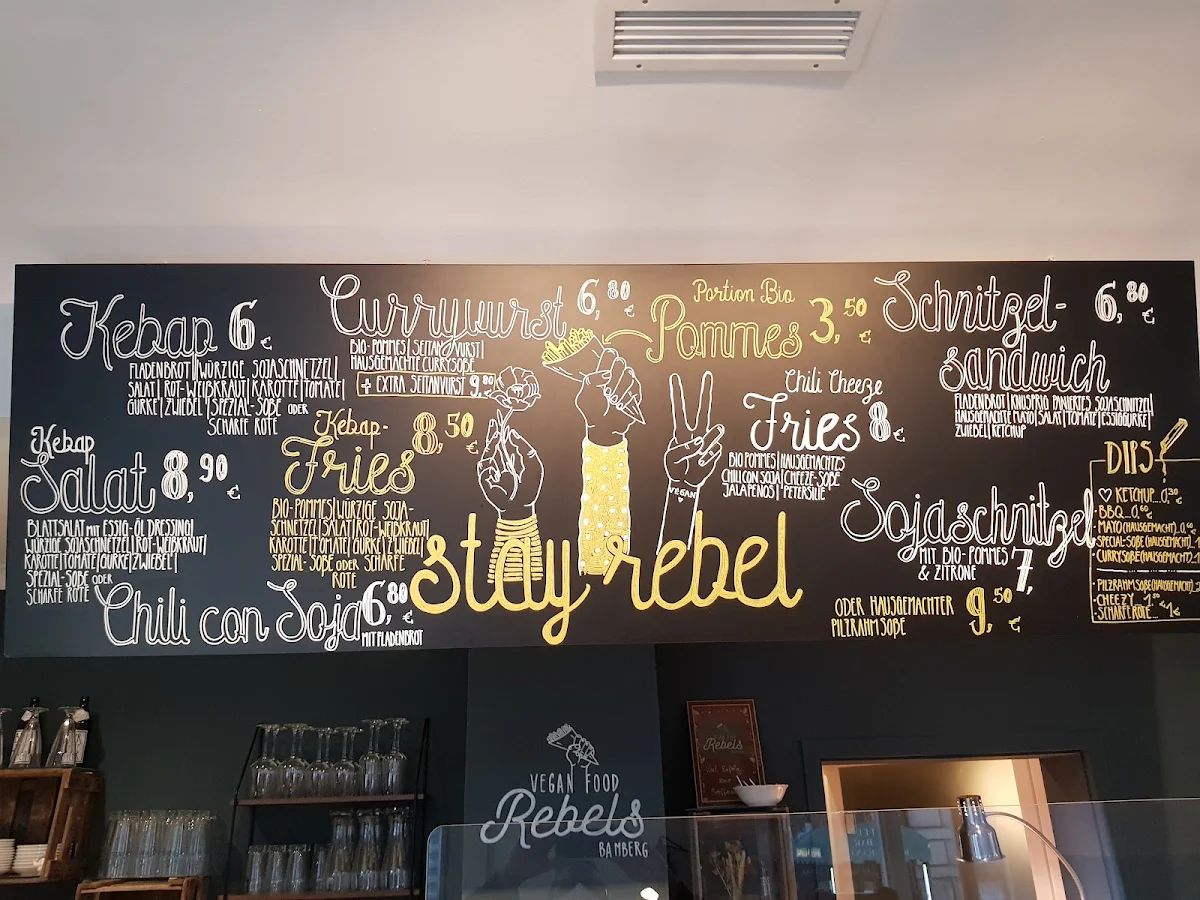 Kebap 6 €
FLADENBROT | WÜRZIGE SOJASCHNETZEL |
SALAT | ROT-WEIßKRAUT | KAROTTE | TOMATE |
GURKE | ZWIEBEL | SPEZIAL-SOßE ODER
SCHARFE ROTE
Currywurst 6,80 €
BIO-POMMES | SEITANWURST |
HAUSGEMACHTE CURRYSOßE
+ EXTRA SEITANWURST 9,80
Portion Bio
Pommes 3,50 €
Schnitzel- 6,80 €
sandwich
FLADENBROT | KNUSPRIG PANIERTES SOJASCHNITZEL |
HAUSGEMACHTE MAYO | SALAT | TOMATE | ESSIGGURKE |
ZWIEBEL | KETCHUP
Kebap
Salat 8,90 €
BLATTSALAT MIT ESSIG-ÖL DRESSING |
WÜRZIGE SOJASCHNETZEL | ROT-WEIßKRAUT |
KAROTTE | TOMATE | GURKE | ZWIEBEL |
SPEZIAL-SOßE ODER
SCHARFE ROTE
Kebap-
Fries 8,50 €
BIO-POMMES | WÜRZIGE SOJA-
SCHNETZEL | SALAT | ROT-WEIßKRAUT |
KAROTTE | TOMATE | GURKE | ZWIEBEL |
SPEZIAL-SOßE ODER SCHARFE
ROTE
Chili con Soja 6,80 €
MIT FLADENBROT
VEGAN
stay rebel
Chili Cheeze
Fries 8 €
BIO POMMES | HAUSGEMACHTES
CHILI CON SOJA | CHEEZE-SOßE
JALAPENOS | PETERSILIE
Sojaschnitzel
MIT BIO-POMMES 7,
& ZITRONE
ODER HAUSGEMACHTER 9,50 €
PILZRAHM SOßE
DIPS
KETCHUP...
BBQ...
MAYO (HAUSGEMACHT)
SPECIAL-SOßE (HAUSGEMACHT)
CURRYSOßE (HAUSGEMACHT)
PILZRAHM SOßE (HAUSGEMACHT)
CHEEZY
SCHARFE ROTE...
VEGAN FOOD
Rebels
BAMBERG
Rebels